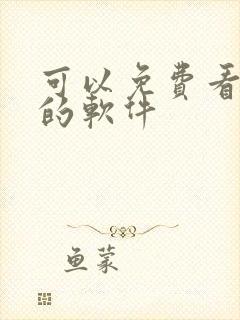 可以免费看
的軟件
鱼蒙